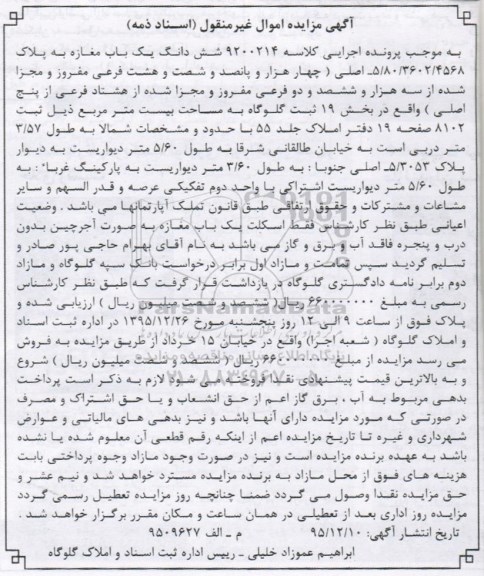 آگهی مزایده اموال غیرمنقول (اسناد ذمه)
به موجب پرونده اجرایی کلاسه ۹۲۰۰۲۱۴ شش دانگ یک باب مغازه به پلاک
۵/۸۰/۳۶۰۲/۴۵۶۸ـ اصلی ( چهار هزار و پانصد و شصت و هشت فرعی مفروز و مجزا
شده از سه هزار و ششصد و دو فرعی مفروز و مجزا شده از هشتاد فرعی از پنج
اصلی ) واقع در بخش ۱۹ ثبت گلوگاه به مساحت بیست متر مربع ذیل ثبت
۸۱۰۲ صفحه ۱۹ دفتر املاک جلد ۵۵ با حدود و مشخصات شمالا به طول ۳/۵۷
متر دربی است به خیابان طالقانی شرقا به طول ۵/۶۰ متر دیواریست به دیوار
پلاک ۵/۳۰۵۳ـ اصلی جنوبا : به طول ۳/۶۰ متر دیواریست به پارکینگ غربا : به
طول ۵/۶۰ متر دیواریست اشتراکی با واحد دوم تفکیکی عرصه و قدر السهم و سایر
مشاعات و مشترکات و حقوق ارتفاقی طبق قانون تملک آپارتمانها می باشد . وضعیت
اعیانی طبق نظر کارشناس فقط اسکلت یک باب مغازه به صورت آجرچین بدون
درب و پنجره فاقد آب و برق و گاز می باشد به نام آقای بهرام حاجی پور صادر و
تسلیم گردید سپس تمامت و مازاد اول برابر درخواست بانک سپه گلوگاه و مازاد
دوم برابر نامه دادگستری گلوگاه در بازداشت قرار گرفت که طبق نظر کارشناس
رسمی به مبلغ ۶۶۰۰۰۰۰۰۰ ریال( ششصد و شصت میلیون ریال ) ارزیابی شده و
پلاک فوق از ساعت ۹ الی ۱۲ روز پنجشنبه مورخ ۱۳۹۵/۱۲/۲۶ در اداره ثبت اسناد
و املاک گلوگاه ( شعبه اجرا) واقع در خیابان ۱۵ خرداد از طریق مزایده به فروش
می رسد مزایده از مبلغ ۶۶۰۰۰۰۰۰۰ ریال ( ششصد و شصت میلیون ریال ) شروع
و به بالاترین قیمت پیشنهادی نقدا فروخته می شود لازم به ذکر است پرداخت
بدهی مربوط به آب ، برق گاز اعم از حق انشعاب و یا حق اشتراک و مصرف
در صورتی که مورد مزایده دارای آنها باشد و نیز بدهی های مالیاتی و عوارض
شهرداری و غیره تا تاریخ مزایده اعم از اینکه رقم قطعی آن معلوم شده یا نشده
باشد به عهده برنده مزایده است و نیز در صورت وجود مازاد وجوه پرداختی بابت
هزینه های فوق از محل مازاد به برنده مزایده مسترد خواهد شد و نیم عشر و
حق مزایده نقدا وصول می گردد ضمنا چنانچه روز مزایده تعطیل رسمی گردد
مزایده روز اداری بعد از تعطیلی در همان ساعت و مکان مقرر برگزار خواهد شد .
تاریخ انتشار آگهی: ۹۵/۱۲/۱۰ م - الف ۹۵۰۹۶۲۷
ابراهیم عموزاد خلیلی - رییس اداره ثبت اسناد و املاک گلوگاه